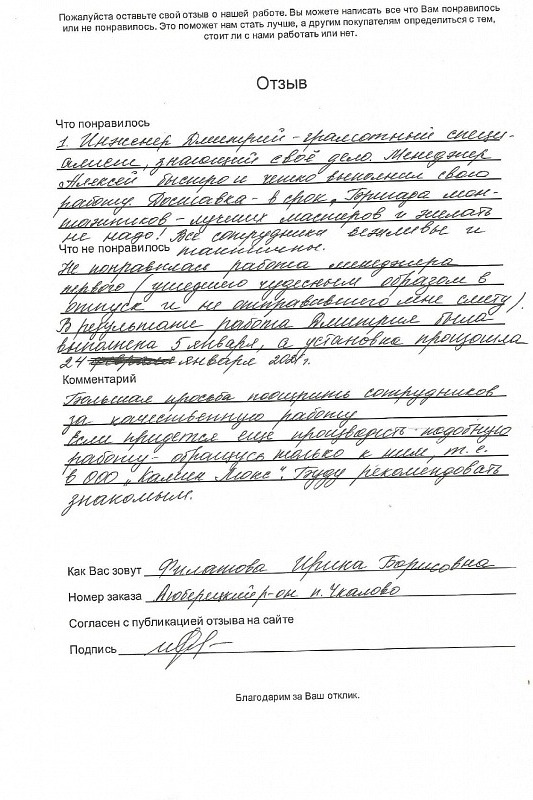 Пожалуйста оставьте свой отзыв о нашей работе. Вы можете написать все что Вам понравилось
или не понравилось. Это поможет нам стать лучше, а другим покупателям определиться с тем,
стоит ли с нами работать или нет.
Отзыв
Что понравилось
1. Инженер Дмитрий - грамотный специ-
алист, знающий своё дело. Менеджер
Алексей быстро и четко выполнил свою
работу. Доставка - в срок. Бригада мон-
тажников - лучших мастеров и желать
не надо! Все сотрудники вежливые и
тактичные.
Что не понравилось
Не понравилась работа менеджера
первого (ушедшего чудесным образом в
отпуск и не отправившего мне смету).
В результате работа Дмитрия была
выполнена 5 января, а установка произошла
24 января 2021г.
Комментарий
Большая просьба поощрить сотрудников
за качественную работу
если придется еще производить подобную
работу - обращусь только к ним, т.е.
в ООО „Камин Люкс". Буду рекомендовать
знакомым.
Как Вас зовут Филатова Ирина Борисовна
Номер заказа Люберецкий р-он п. Чкалово
Согласен с публикацией отзыва на сайте
Подпись
Благодарим за Ваш отклик.